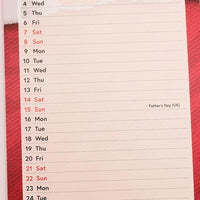 4 Wed
5 Thu
6 Fri
7 Sat
8 Sun
9 Mon
10 Tue
11 Wed
12 Thu
13 Fri
14 Sat
15 Sun Father's Day (UK)
16 Mon
17 Tue
18 Wed
19 Thu
20 Fri
21 Sat
22 Sun
23 Mon
24 Tue